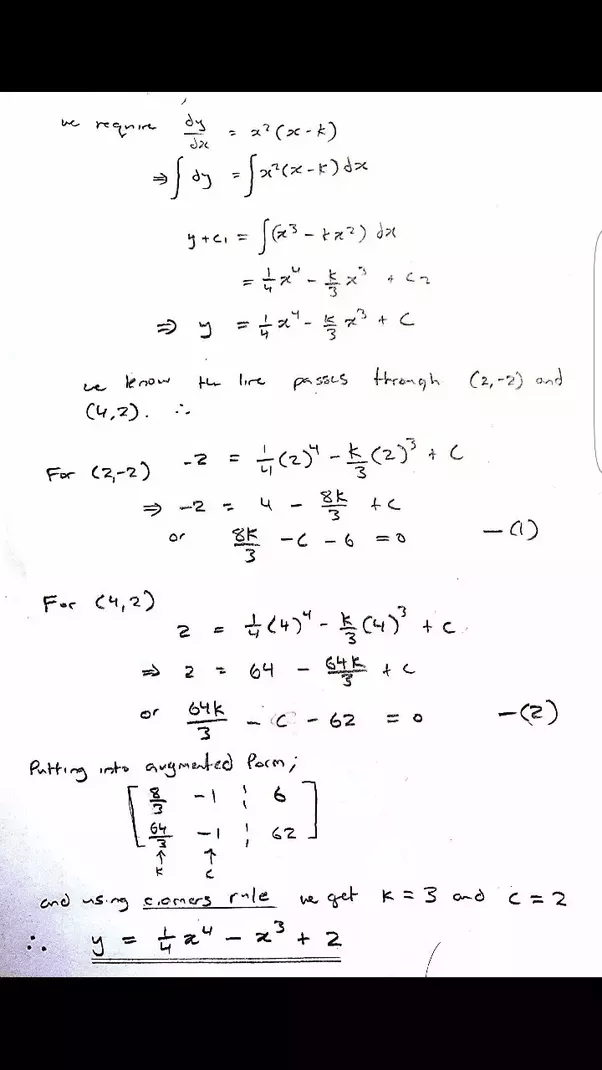 we require dy/dx = x²(x-k)
⇒ ∫dy = ∫x²(x-k)dx
y+c₁ = ∫(x³ - kx²) dx
= 1/4 x⁴ - k/3 x³ + C₂
⇒ y = 1/4 x⁴ - k/3 x³ + C
we know the line passes through (2,-2) and
(4,2). ∴
For (2,-2) -2 = 1/4(2)⁴ - k/3(2)³ + C
⇒ -2 = 4 - 8k/3 + C
or 8k/3 - C - 6 = 0 —(1)
For (4,2)
2 = 1/4(4)⁴ - k/3(4)³ + C
⇒ 2 = 64 - 64k/3 + C
or 64k/3 - C - 62 = 0 —(2)
Putting into augmented form;
[ 8/3 -1 ¦ 6 ]
[ 64/3 -1 ¦ 62 ]
↑ ↑
k c
and using cramers rule we get k=3 and C=2
∴ y = 1/4 x⁴ - x³ + 2